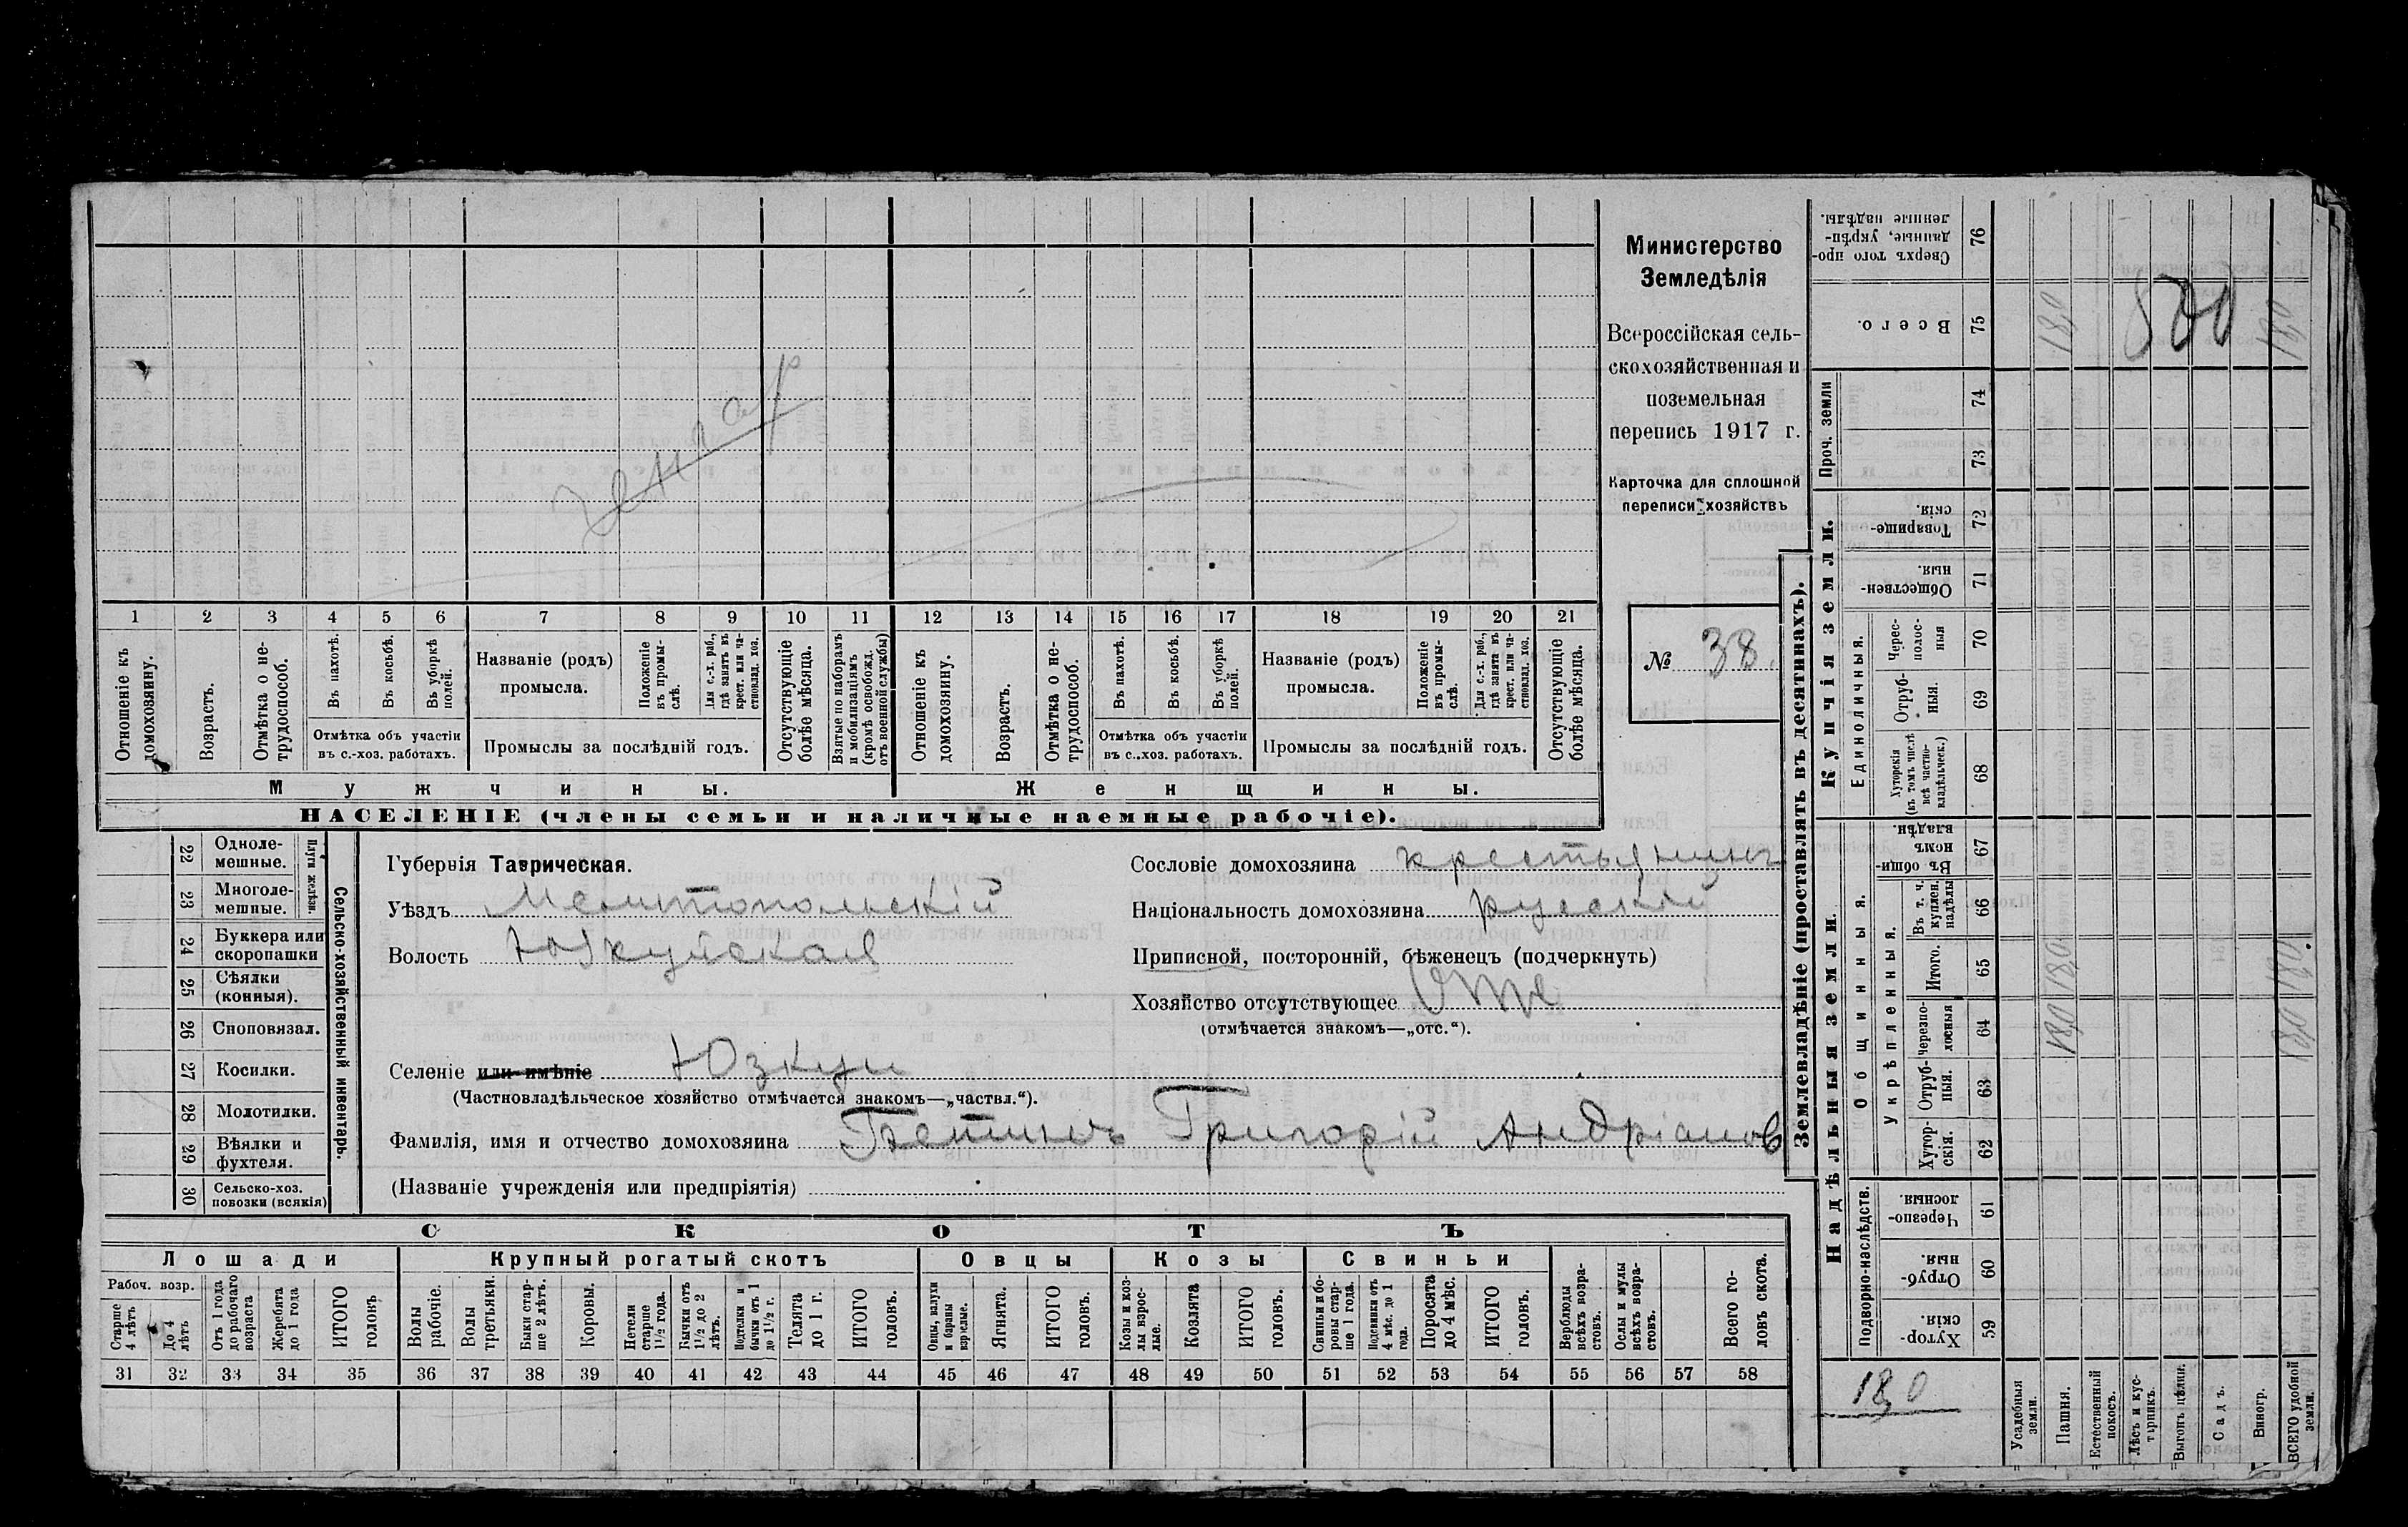 Министерство
Земледѣлія
Всероссійская сель-
скохозяйственная и
поземельная
перепись 1917 г.
Карточка для сплошной
переписи хозяйствъ
№ 38.
1 2 3 4 5 6 7 8 9 10 11 12 13 14 15 16 17 18 19 20 21
Отношеніе къ домохозяину.
Возрастъ.
Отмѣтка о не-
трудоспособ.
Въ пахотѣ.
Въ косьбѣ.
Въ уборкѣ полей.
Отмѣтка объ участіи
въ с.-хоз. работахъ.
Названіе (родъ)
промысла.
Положеніе въ промы-
слѣ.
Для с.-х. раб., гдѣ занятъ въ крест. или ча-
стновлад. хоз.
Промыслы за послѣдній годъ.
Отсутствующіе болѣе мѣсяца.
Взятые по наборамъ и мобилизаціямъ (кромѣ освобожд. отъ военной службы)
Отношеніе къ домохозяину.
Возрастъ.
Отмѣтка о не-
трудоспособ.
Въ пахотѣ.
Въ косьбѣ.
Въ уборкѣ полей.
Отмѣтка объ участіи
въ с.-хоз. работахъ.
Названіе (родъ)
промысла.
Положеніе въ промы-
слѣ.
Для с.-х. раб., гдѣ занята въ крест. или ча-
стновлад. хоз.
Промыслы за послѣдній годъ.
Отсутствующіе болѣе мѣсяца.
Мужчины. Женщины.
НАСЕЛЕНІЕ (члены семьи и наличные наемные рабочіе).
Сельско-хозяйственный инвентарь.
Плуги желѣзн.
22 Одноле-
мешные.
23 Многоле-
мешные.
24 Буккера или
скоропашки
25 Сѣялки
(конныя).
26 Сноповязал.
27 Косилки.
28 Молотилки.
29 Вѣялки и
фухтеля.
30 Сельско-хоз.
повозки (всякія)
Губернія Таврическая.
Уѣздъ Мелитопольскій
Волость Юзкуйская
Селеніе или имѣніе Юзкуи
(Частновладѣльческое хозяйство отмѣчается знакомъ—„частвл.“).
Фамилія, имя и отчество домохозяина Григорій Андріанов
(Названіе учрежденія или предпріятія)
Сословіе домохозяина крестьянинъ
Національность домохозяина русскій
Приписной, посторонній, бѣженецъ (подчеркнуть)
Хозяйство отсутствующее
(отмѣчается знакомъ—„отс.“).
СКОТЪ
Лошади Крупный рогатый скотъ Овцы Козы Свиньи
Рабоч. возр.
Старше 4 лѣтъ
До 4 лѣтъ
Отъ 1 года до рабочаго возраста
Жеребята до 1 года
ИТОГО головъ
Волы рабочіе.
Волы третьяки.
Быки стар-
ше 2 лѣтъ.
Коровы.
Нетели старше 1½ года.
Бычки отъ 1½ до 2 лѣтъ.
Подтелки и бычки отъ 1 до 1½ г.
Телята до 1 г.
ИТОГО головъ.
Овцы, валухи и бараны взрослые.
Ягнята.
ИТОГО головъ.
Козы и коз-
лы взрос-
лые.
Козлята
ИТОГО головъ.
Свиньи и бо-
ровы стар-
ше 1 года.
Подсвинки отъ 4 мѣс. до 1 года.
Поросята до 4 мѣс.
ИТОГО головъ.
Верблюды всѣхъ возра-
стовъ.
Ослы и мулы всѣхъ возра-
стовъ.
Всего го-
ловъ скота.
31 32 33 34 35 36 37 38 39 40 41 42 43 44 45 46 47 48 49 50 51 52 53 54 55 56 57 58
Землевладѣніе (проставлять въ десятинахъ).
Надѣльныя земли. Купчія земли. Проч. земли
Подворно-наслѣдств. Общинныя. Укрѣпленныя. Единоличныя.
Хутор-
скія. 59
Отруб-
ныя. 60
Черезпо-
лосныя. 61
Хутор-
скія. 62
Отруб-
ныя. 63
Черезпо-
лосныя 64
Итого. 65
Въ т. ч. куплен. надѣлы 66
Въ общи-
номъ владѣн. 67
Хуторскія (въ томъ числѣ всѣ частно-
владѣльческ.) 68
Отруб-
ныя. 69
Черес-
полос-
ныя 70
Обществен-
ныя. 71
Товарище-
скія. 72
73
74
Всего. 75
Сверхъ того про-
данные, укрѣп-
ленные надѣлы. 76
Усадебныя земли.
Пашня.
Естественный покосъ.
Лѣсъ и кус-
тарникъ.
Выгонъ цѣлин.
Садъ.
Виногр.
ВСЕГО удобной земли.
180
180 180 180
180 180 180